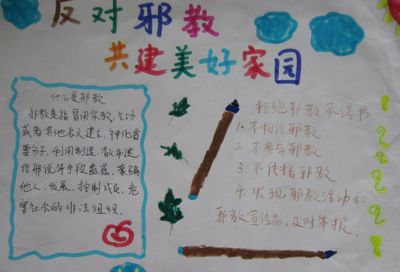 反对邪教
共建美好家园
什么是邪教
邪教是指冒用宗教、气功
或者其他名义建立、神化首
要分子,利用制造、散布迷
信邪说等手段蛊惑、蒙骗
他人,发展、控制成员,危
害社会的非法组织.
拒绝邪教承诺书
1.不相信邪教
2.不参与邪教
3.不传播邪教
4.发现邪教活动和
邪教宣传品,及时举报.